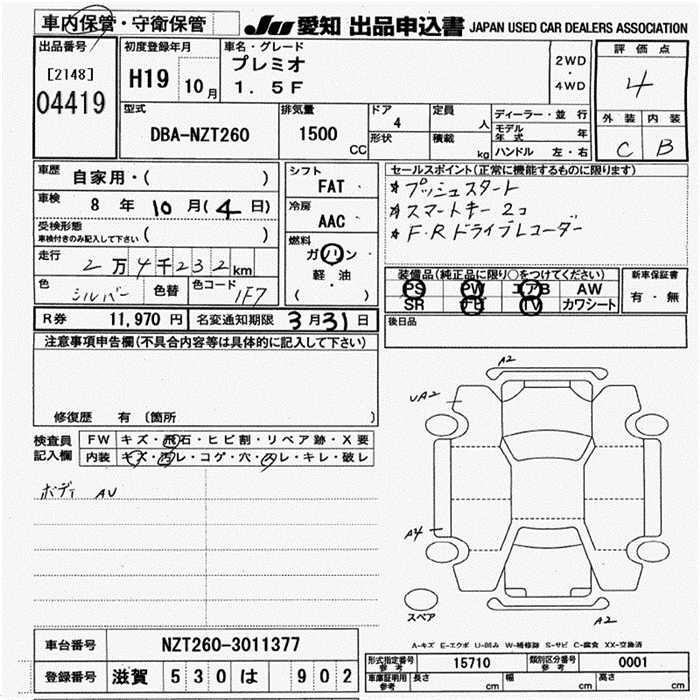 車内保管・守衛保管
JU 愛知 出品申込書 JAPAN USED CAR DEALERS ASSOCIATION
出品番号
[2148]
04419
初度登録年月
H19 10月
車名・グレード
プレミオ
1.5F
2WD
・
4WD
評価点
4
外装 内装
C B
型式
DBA-NZT260
排気量
1500 CC
ドア
4
形状
定員
人
積載
kg
ディーラー・並行
モデル年式 年
ハンドル 左・右
車歴
自家用・( )
車検
8年 10月(4日)
受検形態
車検付きのみ記入して下さい ( )
走行
2万4千232km
色
シルバー
色替
色コード
1F7
シフト
FAT
冷房
AAC
燃料
ガソリン・
軽油
( )
セールスポイント(正常に機能するものに限ります)
★プッシュスタート
★スマートキー2コ
★F・Rドライブレコーダー
装備品(純正品に限り○をつけてください)
PS PW エアB AW
SR ナビ TV カワシート
新車保証書
有・無
後日品
R券 11,970円 名変通知期限 3月31日
注意事項申告欄(不具合内容等は具体的に記入して下さい)
修復歴 有 〔箇所 〕
検査員
記入欄
FW キズ・飛石・ヒビ割・リペア跡・X要
内装 キズ・汚レ・コゲ・穴・スレ・キレ・破レ
ボディ AU
A2
UA2
A4
スペア
A2
A-キズ E-エクボ U-凹み W-補修跡 S-サビ C-腐食 XX-交換済
車台番号 NZT260-3011377
登録番号 滋賀 530 は 902
型式指定番号
参考
15710
類別区分番号
参考
0001
車庫証明用
参考
長さ cm 幅 cm 高さ cm